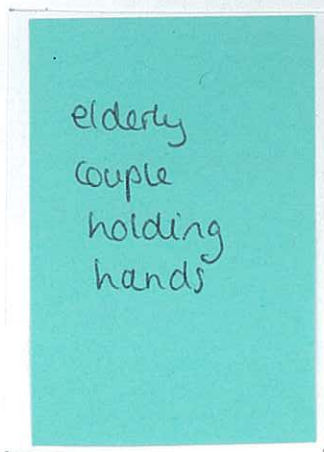 elderly
couple
holding
hands